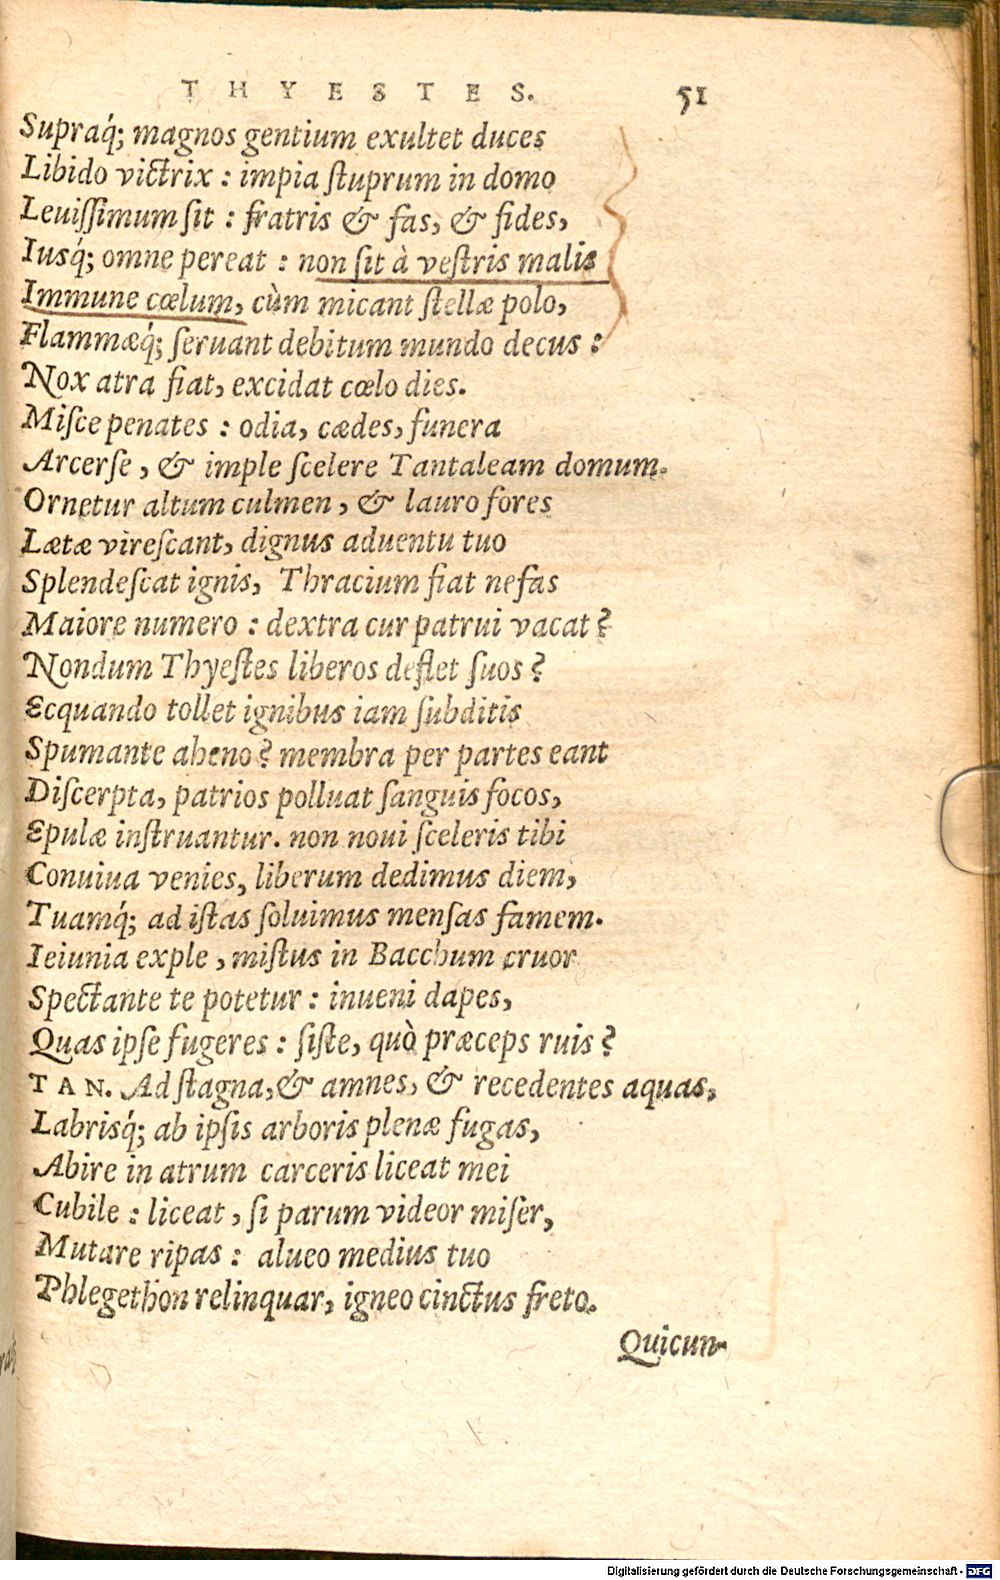 THYESTES. 51
Supraq́; magnos gentium exultet duces
Libido victrix : impia ſtuprum in domo
Leuiſſimum ſit : fratris & fas, & fides,
Iusq́; omne pereat : non ſit à veſtris malis
Immune cœlum, cùm micant ſtellæ polo,
Flammæq́; ſeruant debitum mundo decus :
Nox atra fiat, excidat cœlo dies.
Miſce penates : odia, cædes, funera
Arcerſe, & imple ſcelere Tantaleam domum.
Ornetur altum culmen, & lauro fores
Lætæ vireſcant, dignus aduentu tuo
Splendeſcat ignis, Thracium fiat nefas
Maiore numero : dextra cur patrui vacat?
Nondum Thyeſtes liberos deflet ſuos?
Ecquando tollet ignibus iam ſubditis
Spumante aheno? membra per partes eant
Diſcerpta, patrios polluat ſanguis focos,
Epulæ inſtruantur. non noui ſceleris tibi
Conuiua venies, liberum dedimus diem,
Tuamq́; ad iſtas ſoluimus menſas famem.
Ieiunia exple, miſtus in Bacchum cruor
Spectante te potetur : inueni dapes,
Quas ipſe fugeres : ſiſte, quò præceps ruis?
TAN. Ad ſtagna, & amnes, & recedentes aquas,
Labrisq́; ab ipſis arboris plenæ fugas,
Abire in atrum carceris liceat mei
Cubile : liceat, ſi parum videor miſer,
Mutare ripas : alueo medius tuo
Phlegethon relinquar, igneo cinctus freto.
Quicun-
Digitalisierung gefördert durch die Deutsche Forschungsgemeinschaft - DFG